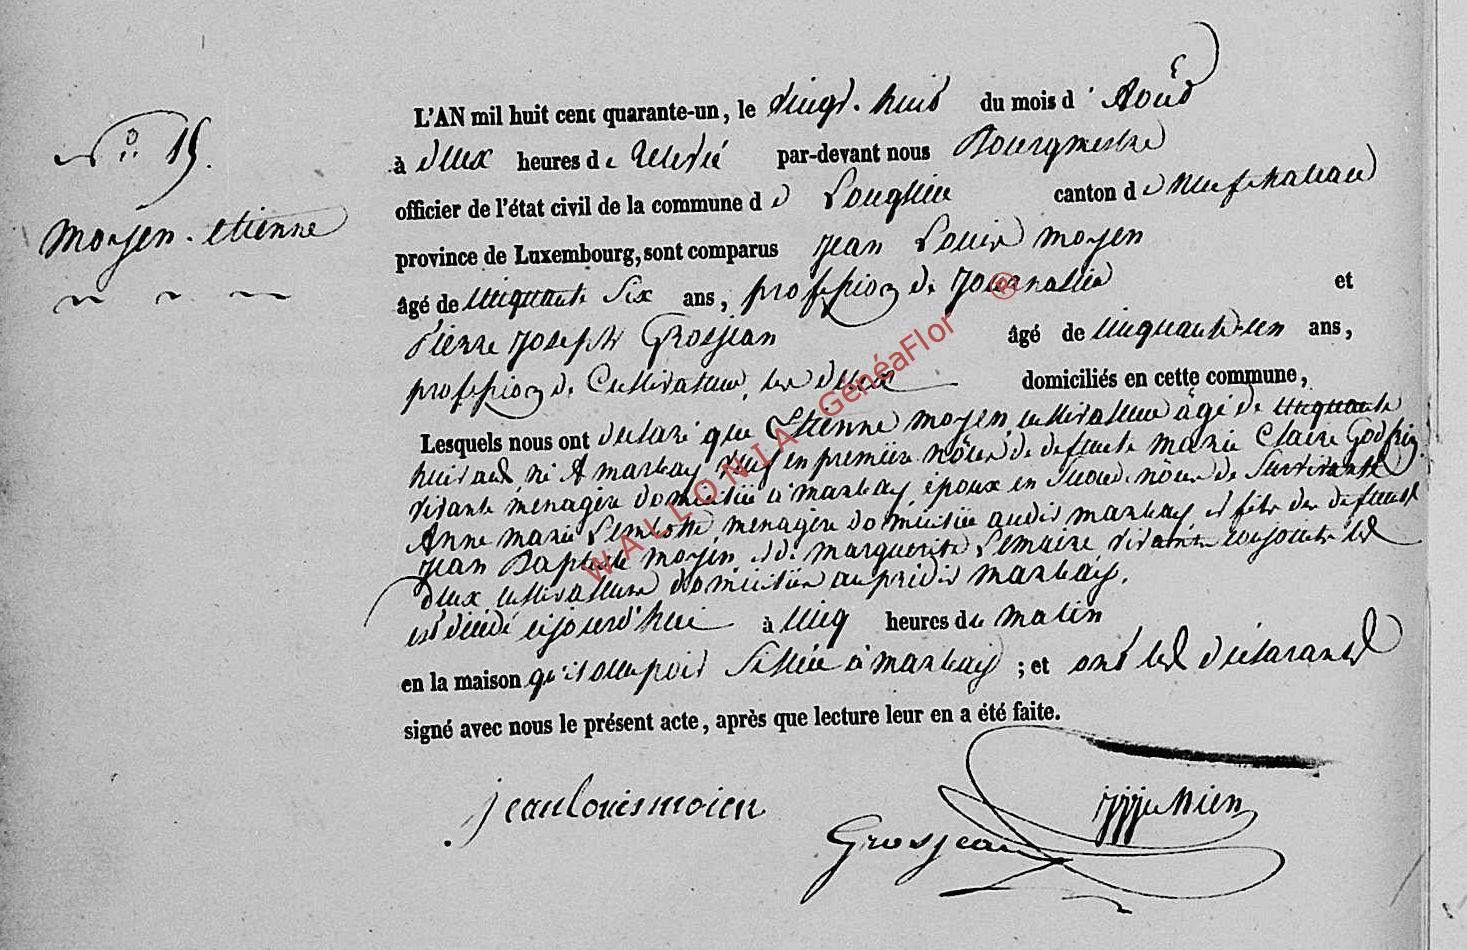 N° 15.
Moyen. etienne
L'AN mil huit cent quarante-un, le vingt. huit du mois d' Août
à deux heures de relevée par-devant nous Bourgmestre
officier de l'état civil de la commune de Longlier canton de Neufchateau
province de Luxembourg, sont comparus jean Louis moyen
âgé de cinquante six ans, profession de journalier et
Pierre joseph Grosjean âgé de cinquante-un ans,
profession de Cultivateur, les deux domiciliés en cette commune,
Lesquels nous ont declaré que Etienne moyen, cultivateur âgé de cinquante
huit ans né A marbay veuf en première nôce de defunte marie Claire Godfrin
vivante menagère domiciliée à marbay, époux en seconde nôce de survivante
Anne marie menagère domiciliée audit marbay et fils des defunts
jean Baptiste moyen, et de marguerite Lemaire, vivants conjoints les
deux cultivateurs domiciliés au prédit marbay,
est décédé aujourd'hui à cinq heures du matin
en la maison qu'il occupoit située à marbay ; et ont les déclarants
signé avec nous le présent acte, après que lecture leur en a été faite.
jean louis moien
Grosjean
WALLONIA GenéaFlor ®